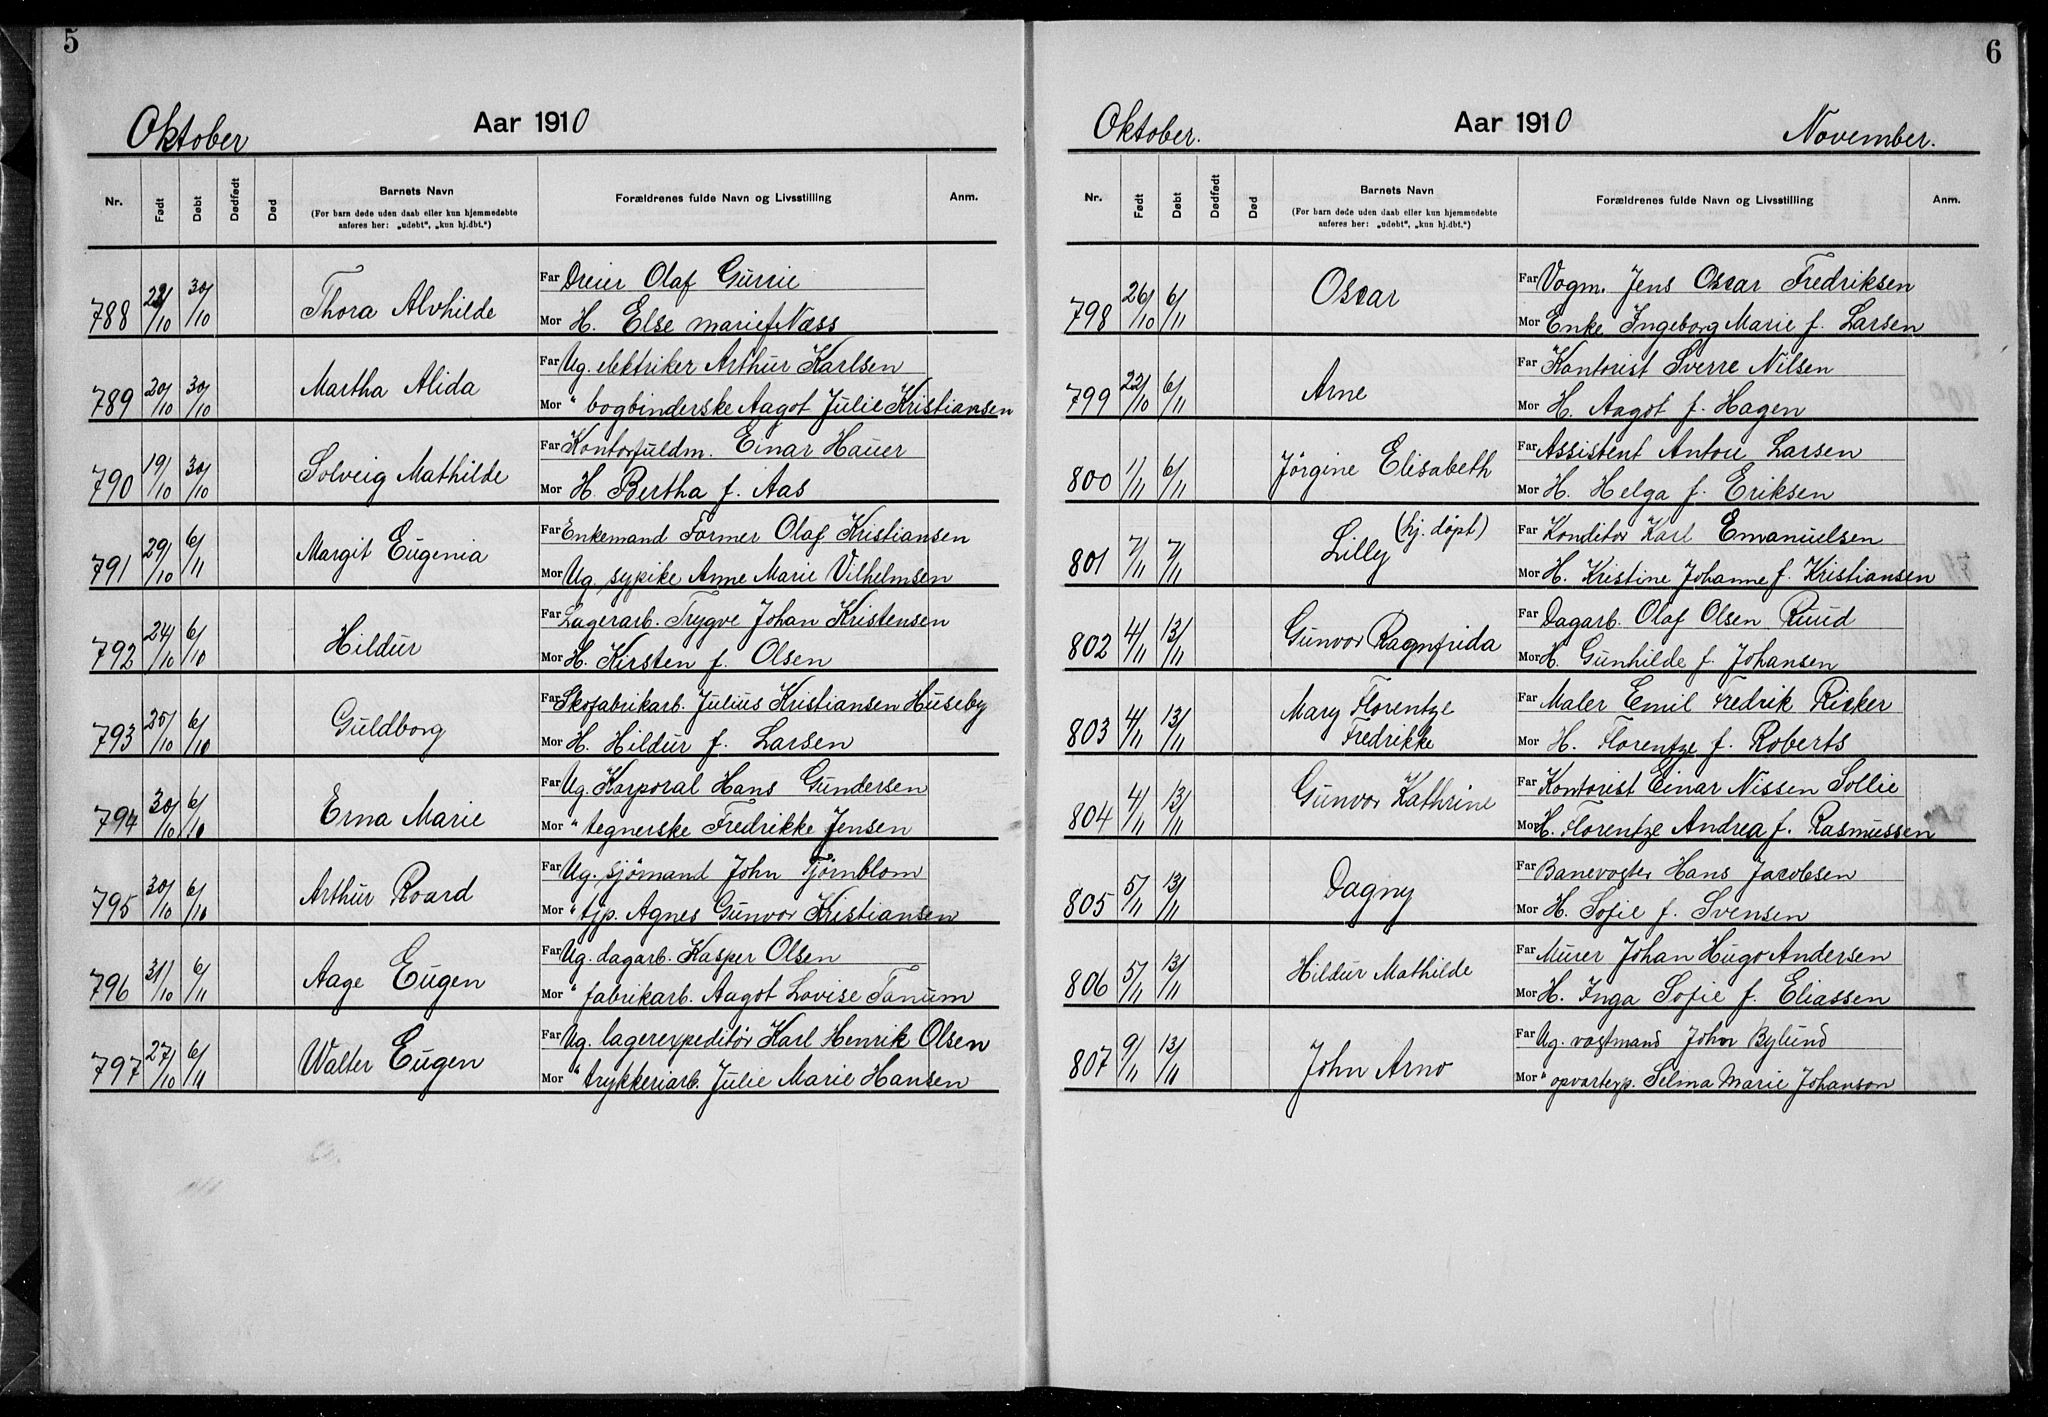 5
Oktober
Aar 1910
Nr.
Født
Døbt
Dødfødt
Død
Barnets Navn
(For barn døde uden daab eller kun hjemmedøbte
anføres her: „udøbt“, „kun hj.dbt.“)
Forældrenes fulde Navn og Livsstilling
Anm.
788 22/10 30/10 Thora Alvhilde
Far Dreier Olaf
Mor H. Else Marie f. Næss
789 20/10 30/10 Martha Alida
Far Ug. elektriker Arthur Karlsen
Mor " bogbinderske Aagot Julie Kristiansen
790 19/10 30/10 Solveig Mathilde
Far Kontorfuldm. Einar Hauer
Mor H. Bertha f. Aas
791 29/10 6/11 Margit Eugenia
Far Enkemand Former Olaf Kristiansen
Mor Ug. sypike Anne Marie Vilhelmsen
792 24/10 6/10 Hildur
Far Lagerarb. Trygve Johan Kristensen
Mor H. Kirsten f. Olsen
793 25/10 6/10 Guldborg
Far Skofabrikarb. Julius Kristiansen Huseby
Mor H. Hildur f. Larsen
794 30/10 6/10 Erna Marie
Far Ug. Korporal Hans Gundersen
Mor " tegnerske Fredrikke Jensen
795 30/10 6/10 Arthur Roard
Far Ug. sjømand John Tjørnblom
Mor " tjp. Agnes Gunvor Kristiansen
796 31/10 6/11 Aage Eugen
Far Ug. dagarb. Kasper Olsen
Mor " fabrikarb. Aagot Lovise Tanum
797 27/10 6/11 Walter Eugen
Far Ug. lagerexpeditör Karl Henrik Olsen
Mor " trykkeriarb. Julie Marie Hansen
6
Oktober.
Aar 1910
November.
Nr.
Født
Døbt
Dødfødt
Død
Barnets Navn
(For barn døde uden daab eller kun hjemmedøbte
anføres her: „udøbt“, „kun hj.dbt.“)
Forældrenes fulde Navn og Livsstilling
Anm.
798 26/10 6/11 Oscar
Far Vogm. Jens Oscar Fredriksen
Mor Enke Ingeborg Marie f. Larsen
799 22/10 6/11 Arne
Far Kontorist Sverre Nilsen
Mor H. Aagot f. Hagen
800 1/11 6/11 Jørgine Elisabeth
Far Assistent Anton Larsen
Mor H. Helga f. Eriksen
801 7/11 7/11 Lilly (hj. döpt)
Far Konditor Karl Emanuelsen
Mor H. Kristine Johanne f. Kristiansen
802 4/11 13/11 Gunvor Ragnfrida
Far Dagarb. Olaf Olsen Ruud
Mor H. Gunhilde f. Johansen
803 4/11 13/11 Mary Florentze
Fredrikke
Far Maler Emil Fredrik Risker
Mor H. Florentze f. Roberts
804 4/11 13/11 Gunvor Kathrine
Far Kontorist Einar Nissen Sollie
Mor H. Florentze Andrea f. Rasmussen
805 5/11 13/11 Dagny
Far Banevogter Hans Jacobsen
Mor H. Sofie f. Svensen
806 5/11 13/11 Hildur Mathilde
Far Murer Johan Hugo Andersen
Mor H. Inga Sofie f. Eliassen
807 9/11 13/11 John Arno
Far Ug. vogtmand John Bylund
Mor " opvarterp. Selma Marie Johanson